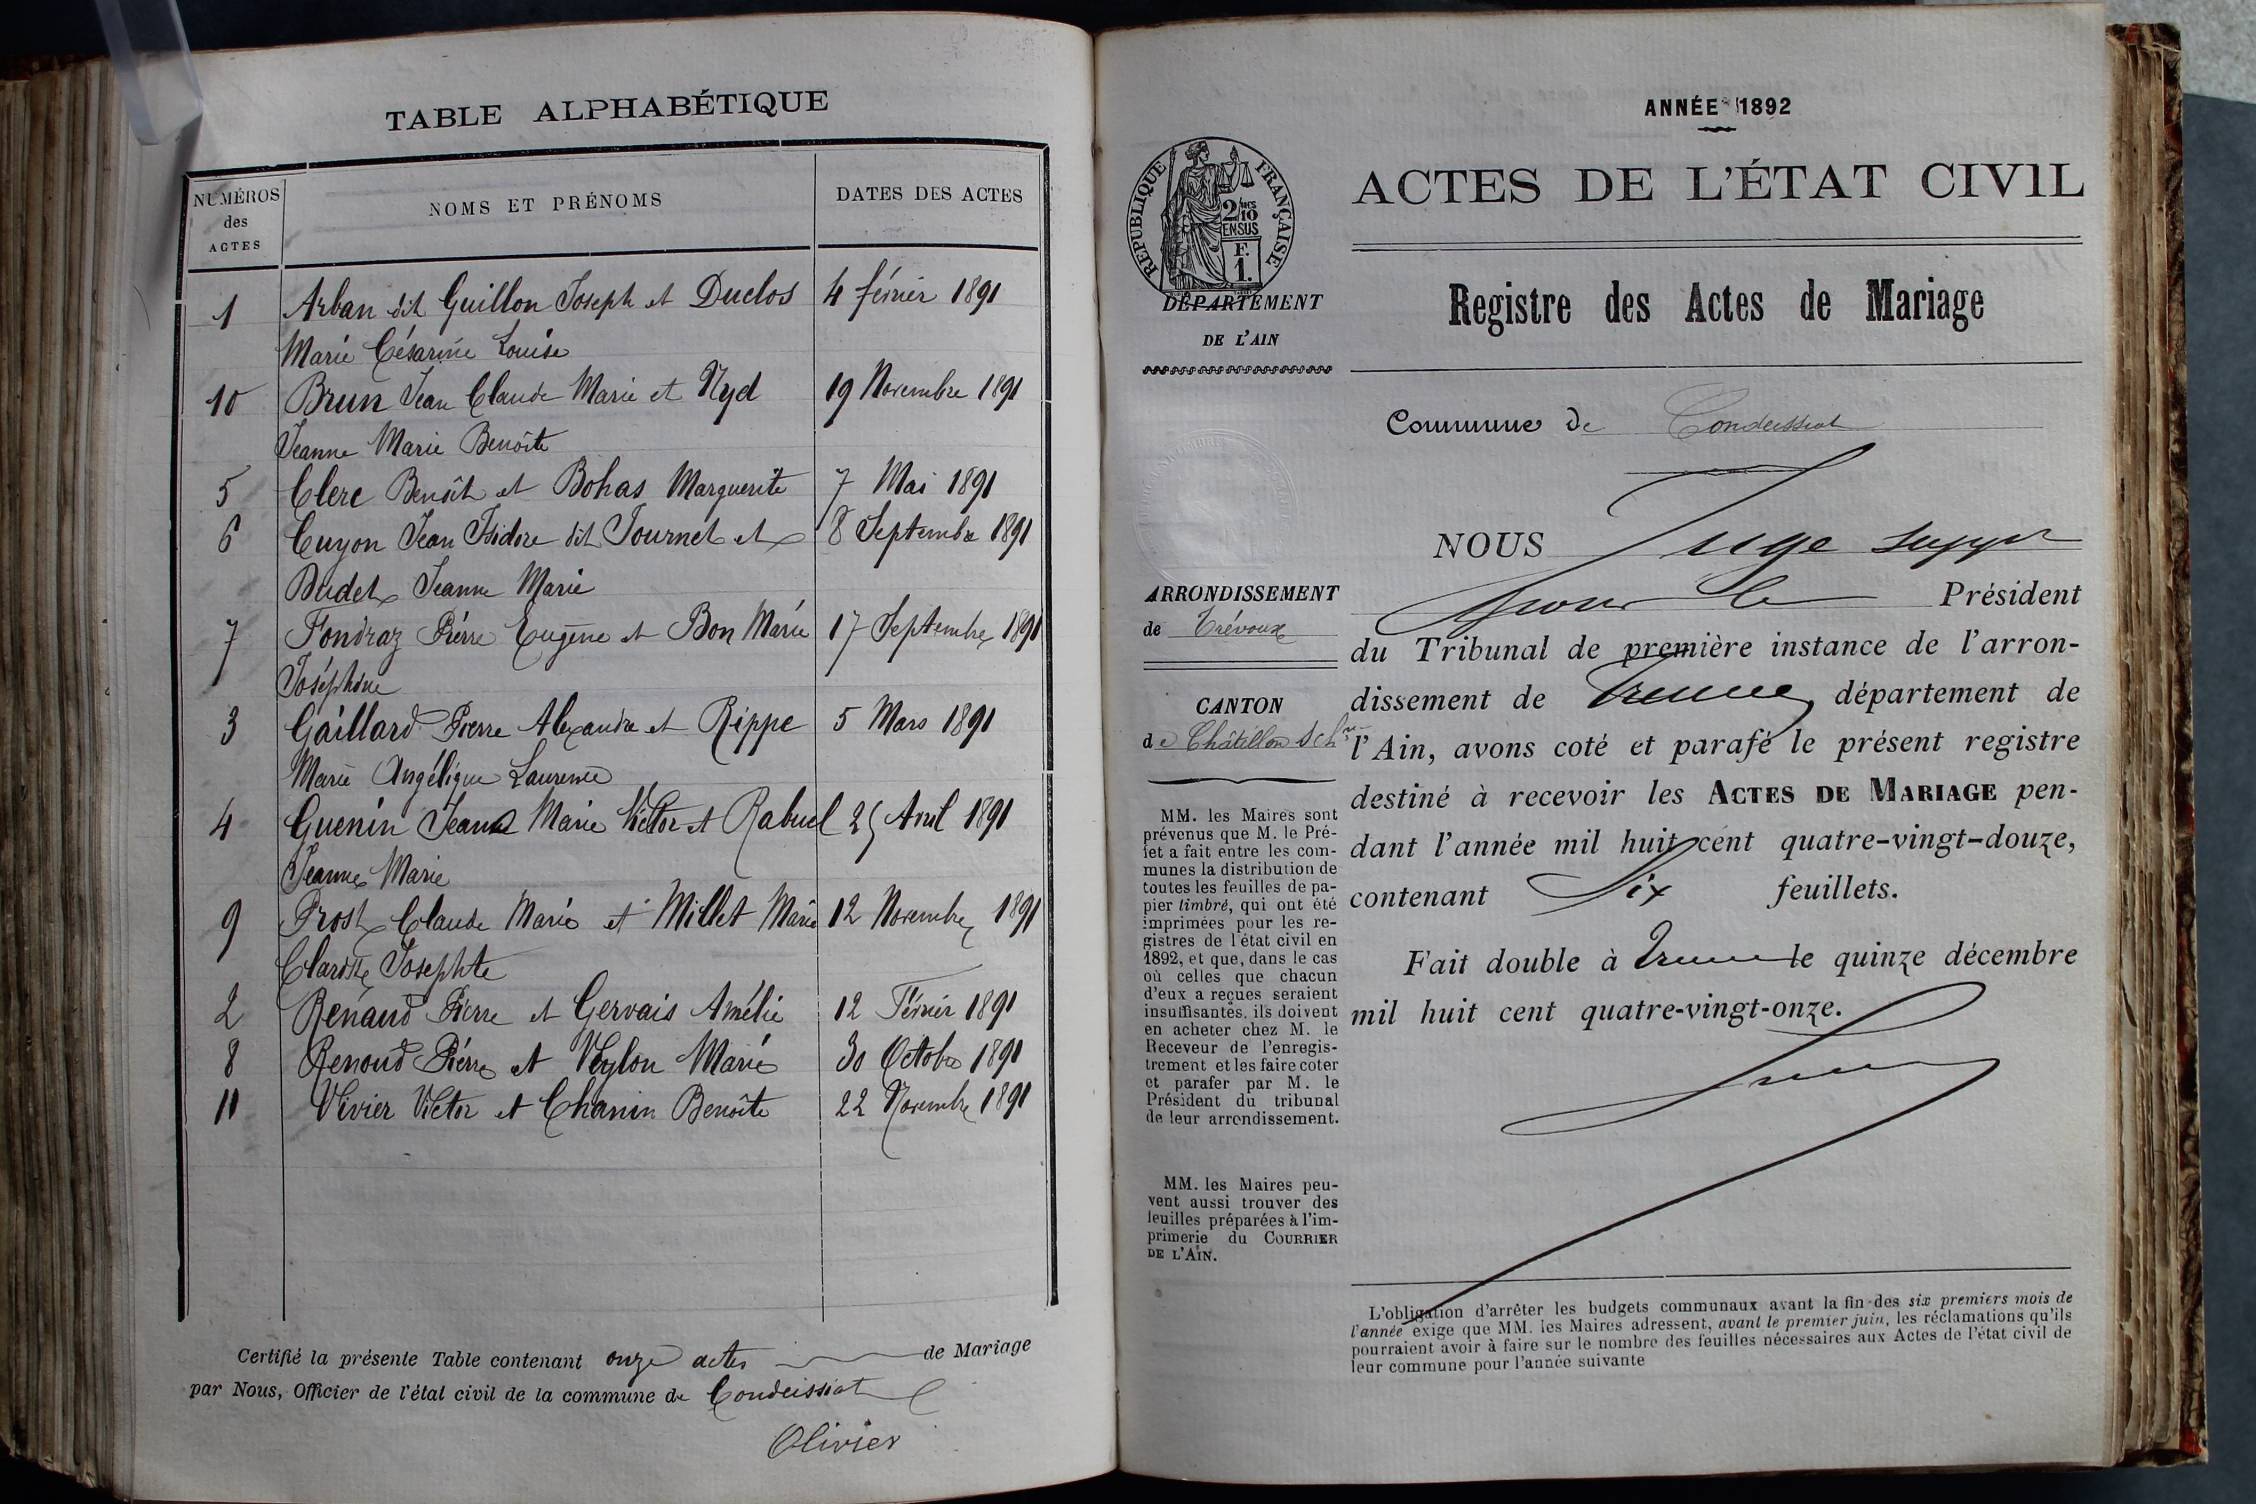 TABLE ALPHABÉTIQUE
NUMÉROS des ACTES
NOMS ET PRÉNOMS
DATES DES ACTES
1 Arban dit Guillon Joseph et Duclos 4 février 1891
Marie Césarine Louise
10 Brun Jean Claude Marie et Nyd 19 Novembre 1891
Jeanne Marie Benoîte
5 Clerc Benoît et Bohas Marguerite 7 Mai 1891
6 Cuyon Jean Isidore dit Journet et 8 Septembre 1891
Budet Jeanne Marie
7 Fondraz Pierre Eugène et Bon Marie 17 Septembre 1891
Joséphine
3 Gaillard Pierre Alexandre et Rippe 5 Mars 1891
Marie Angélique Laurence
4 Guenin Jean Marie Victor et Rabuel 25 Avril 1891
Jeanne Marie
9 Prost Claude Marie et Millet Marie 12 Novembre 1891
Clarisse Josephte
2 Renaud Pierre et Gervais Amélie 12 Février 1891
8 Renoud Pierre et Veylon Marie 30 Octobre 1891
11 Vivier Victor et Chanin Benoîte 22 Novembre 1891
Certifié la présente Table contenant onze actes de Mariage
par Nous, Officier de l'état civil de la commune de Condeissiat
Olivier
ANNÉE 1892
ACTES DE L'ÉTAT CIVIL
RÉPUBLIQUE FRANÇAISE
2/10 mes
EN SUS
F.
1.
DÉPARTEMENT
DE L'AIN
Registre des Actes de Mariage
Commune de Condeissiat
ARRONDISSEMENT
de Trévoux
CANTON
de Châtillon s Chne
MM. les Maires sont
prévenus que M. le Pré-
fet a fait entre les com-
munes la distribution de
toutes les feuilles de pa-
pier timbré, qui ont été
imprimées pour les re-
gistres de l'état civil en
1892, et que, dans le cas
où celles que chacun
d'eux a reçues seraient
insuffisantes, ils doivent
en acheter chez M. le
Receveur de l'enregis-
trement et les faire coter
et parafer par M. le
Président du tribunal
de leur arrondissement.
MM. les Maires peu-
vent aussi trouver des
feuilles préparées à l'im-
primerie du COURRIER
DE L'AIN.
NOUS Juge suppt
pour le Président
du Tribunal de première instance de l'arron-
dissement de Trévoux, département de
l'Ain, avons coté et parafé le présent registre
destiné à recevoir les ACTES DE MARIAGE pen-
dant l'année mil huit cent quatre-vingt-douze,
contenant Six feuillets.
Fait double à Trévoux le quinze décembre
mil huit cent quatre-vingt-onze.
L'obligation d'arrêter les budgets communaux avant la fin des six premiers mois de
l'année exige que MM. les Maires adressent, avant le premier juin, les réclamations qu'ils
pourraient avoir à faire sur le nombre des feuilles nécessaires aux Actes de l'état civil de
leur commune pour l'année suivante